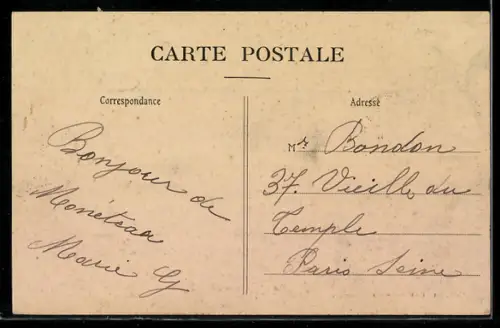 CARTE POSTALE
Correspondance
Adresse
Bonjour de
Monéteau
Marie G
Mr Bondon
37 Vieille du
Temple
Paris Seine